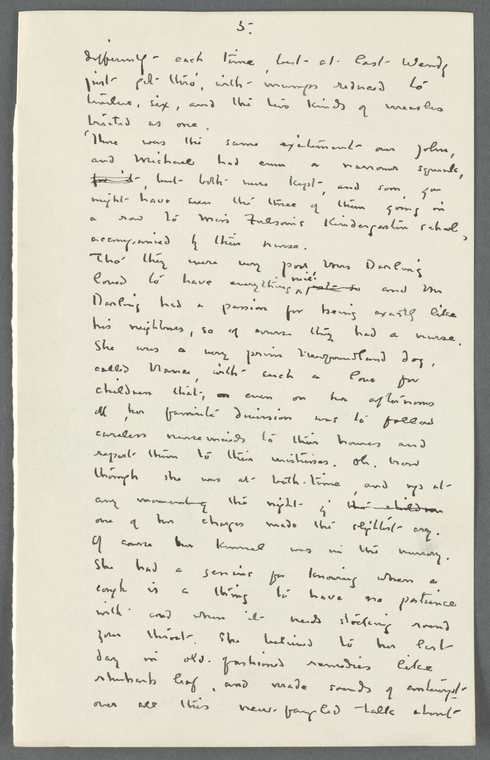 5.
differently each time, but at last Wendy
just got thro', with mumps reduced to
twelve, six, and the two kinds of measles
treated as one.
There was the same excitement over John,
and Michael had even a narrower squeak,
for it, but both were kept, and soon you
might have seen the three of them going in
a row to Miss Fulsom's Kindergarten school,
accompanied by their nurse.
Tho' they were very poor Mrs Darling
loved to have everything nice and Mr
Darling had a passion for being exactly like
his neighbours, so of course they had a nurse.
She was a very prim Newfoundland dog,
called Nana, with such a love for
children that, even on her afternoons
off, her favourite diversion was to follow
careless nursemaids to their homes and
report them to their mistresses. Oh, how
thorough she was at bath-time, and up at
any moment of the night if the children
one of her charges made the slightest cry.
Of course her kennel was in the nursery.
She had a genius for knowing when a
cough is a thing to have no patience
with and when it needs stocking round
your throat. She believed to her last
day in old-fashioned remedies like
rhubarb leaf, and made sounds of contempt
over all this new-fangled talk about